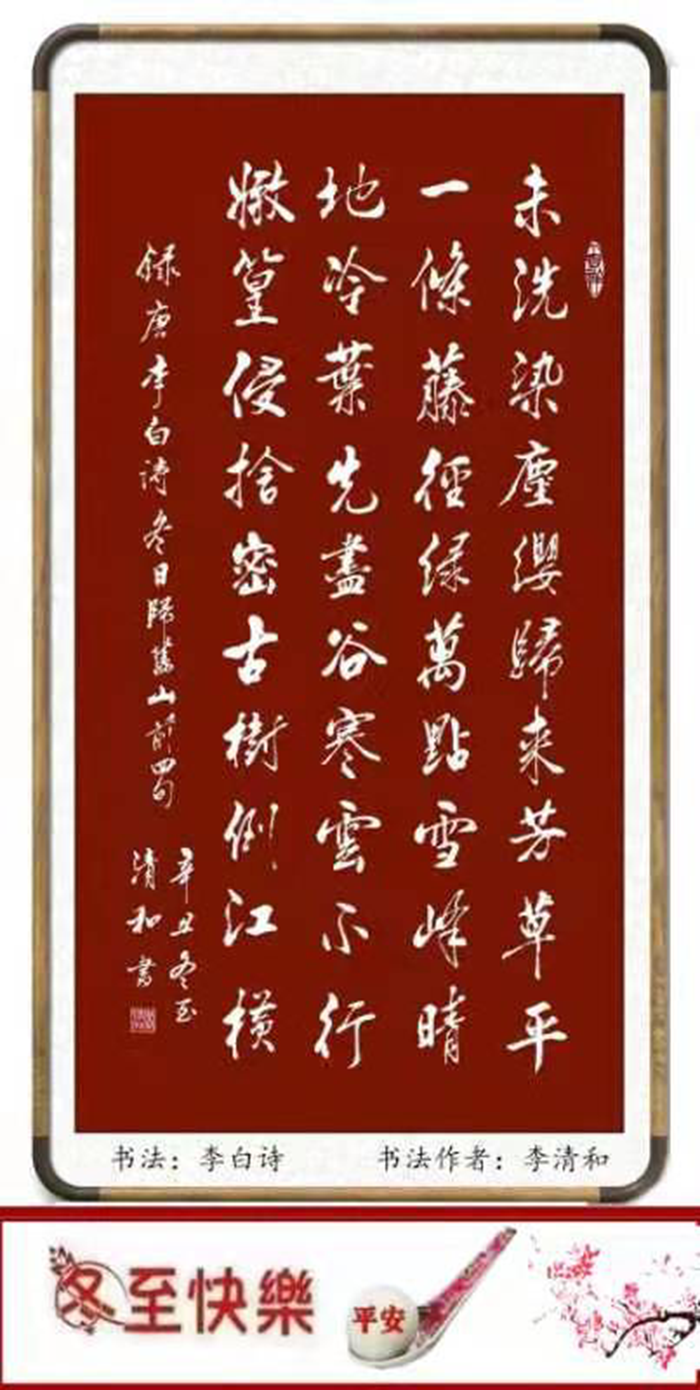 未洗染塵纓歸来芳草平
一條藤徑绿萬點雪峰晴
地冷葉先盡谷寒雲不行
嫩篁侵捨密古樹倒江橫
録唐李白诗冬日歸舊山前四句
辛丑冬至
清和書
书法：李白诗 书法作者：李清和
冬至快樂
平安